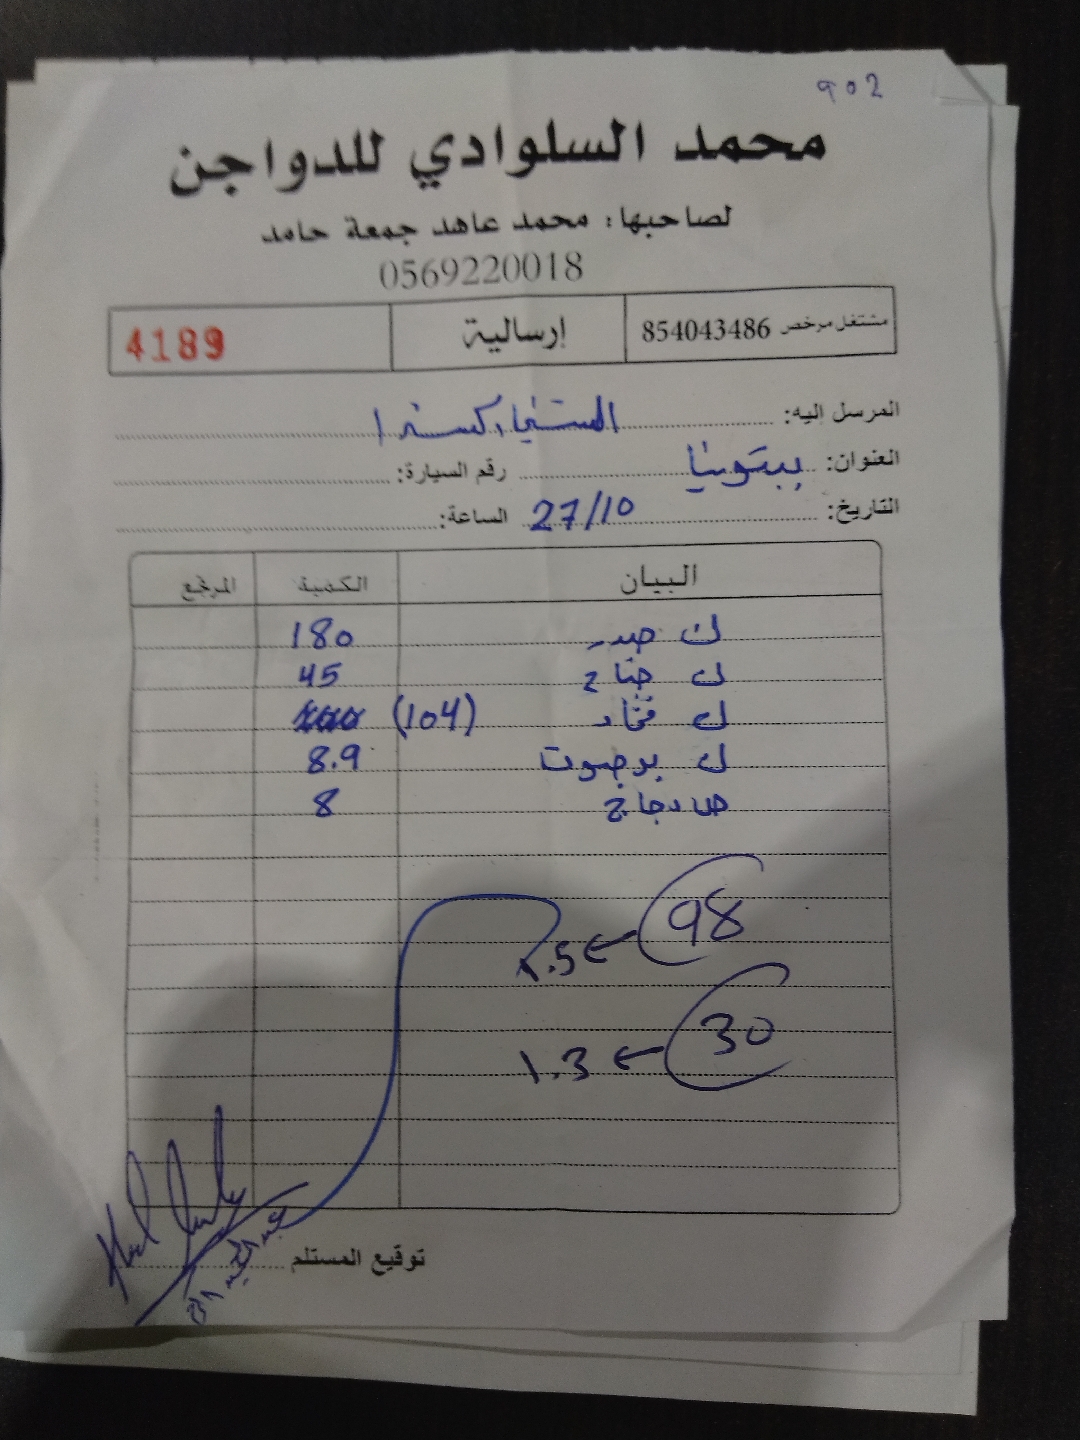 902
محمد السلوادي للدواجن
لصاحبها: محمد عاهد جمعة حامد
0569220018
مشتغل مرخص 854043486 إرسالية 4189
المرسل إليه:
العنوان: بيتونيا رقم السيارة:
التاريخ: 27/10 الساعة:
البيان الكمية المرتجع
ك صدر 180
ك جناح 45
ك فخاد (104)
ك 8.9
ص دجاج 8
98
30 ← 1.3
توقيع المستلم